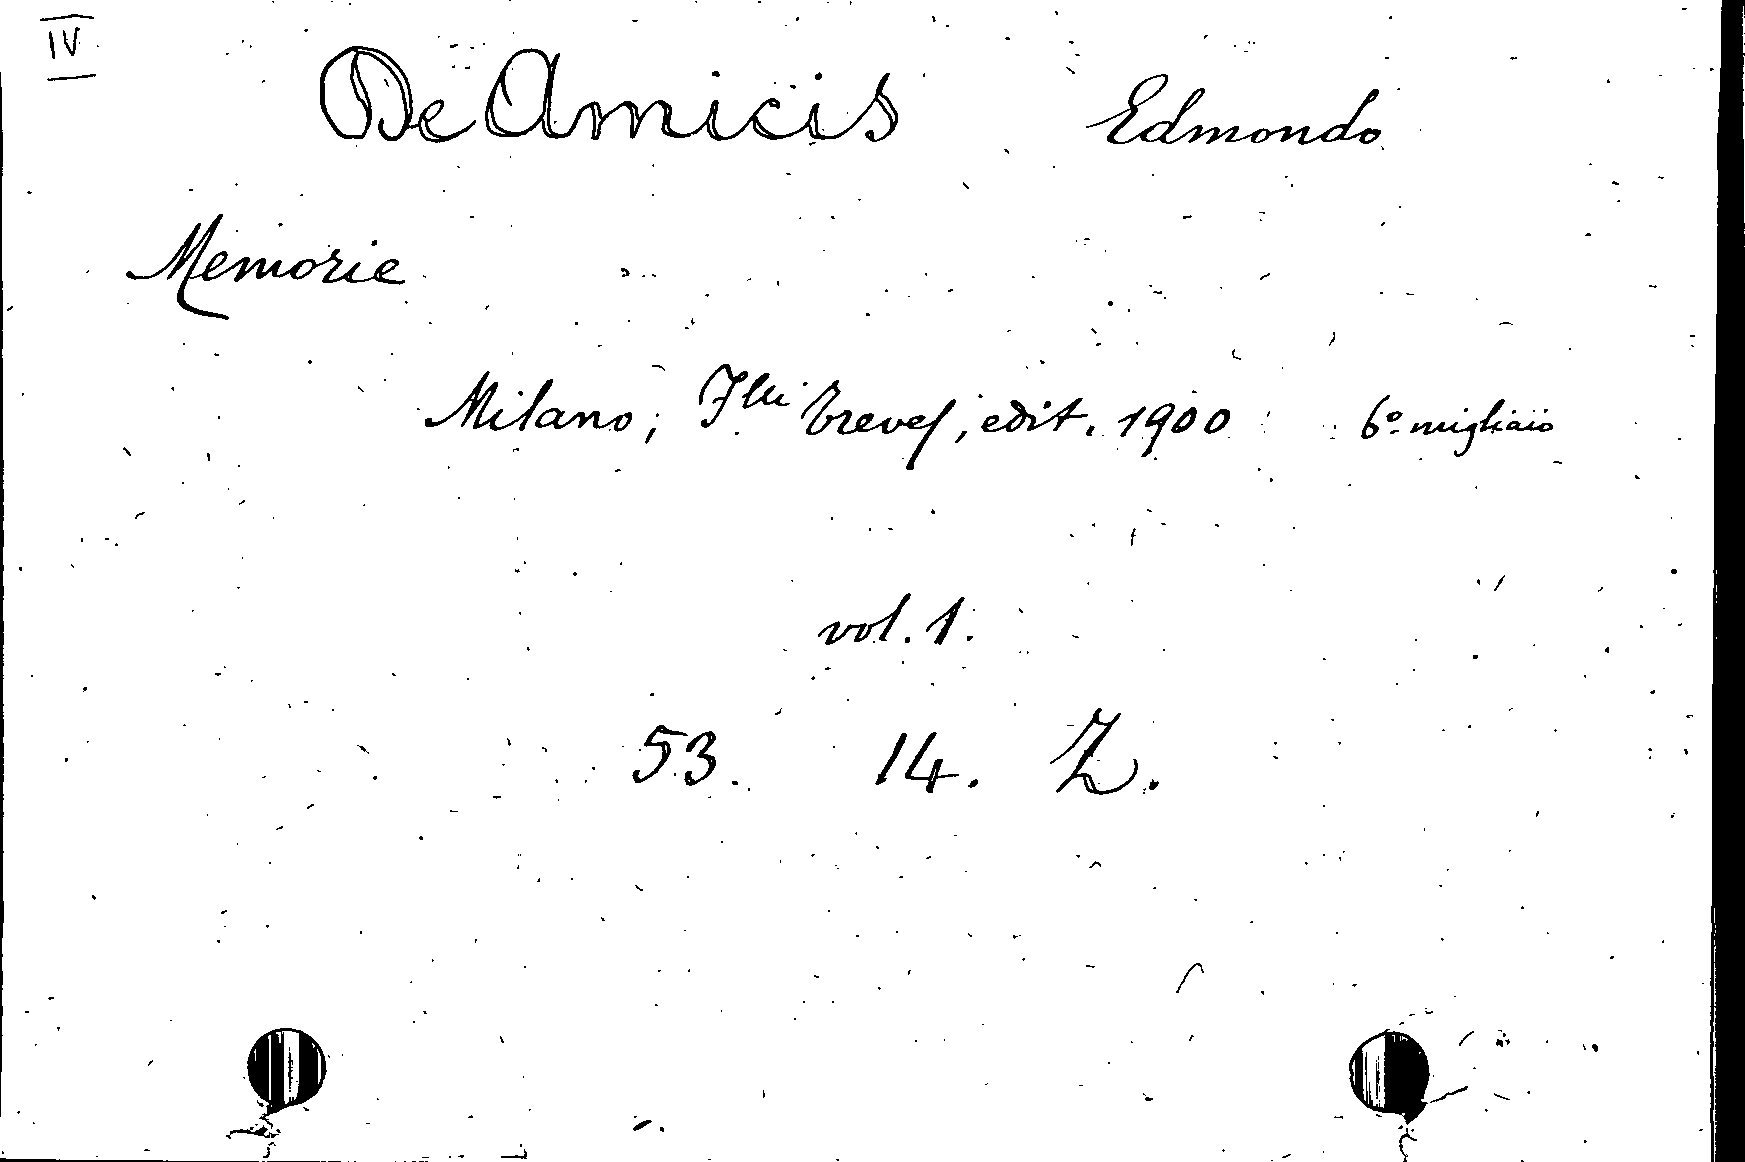 IV
De Amicis Edmondo
Memorie
Milano; Flli Treves, edit. 1900 6º migliaio
vol. 1.
53. 14. Z.